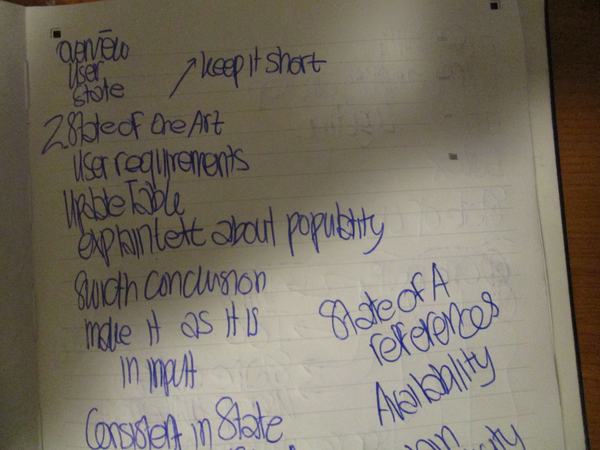 overview
user
state
keep it short
2 State of the Art
User requirements
Update Table
explain text about popularity
Switch conclusion
make it as it is
in input
State of A
references
Availability
Consistent in State